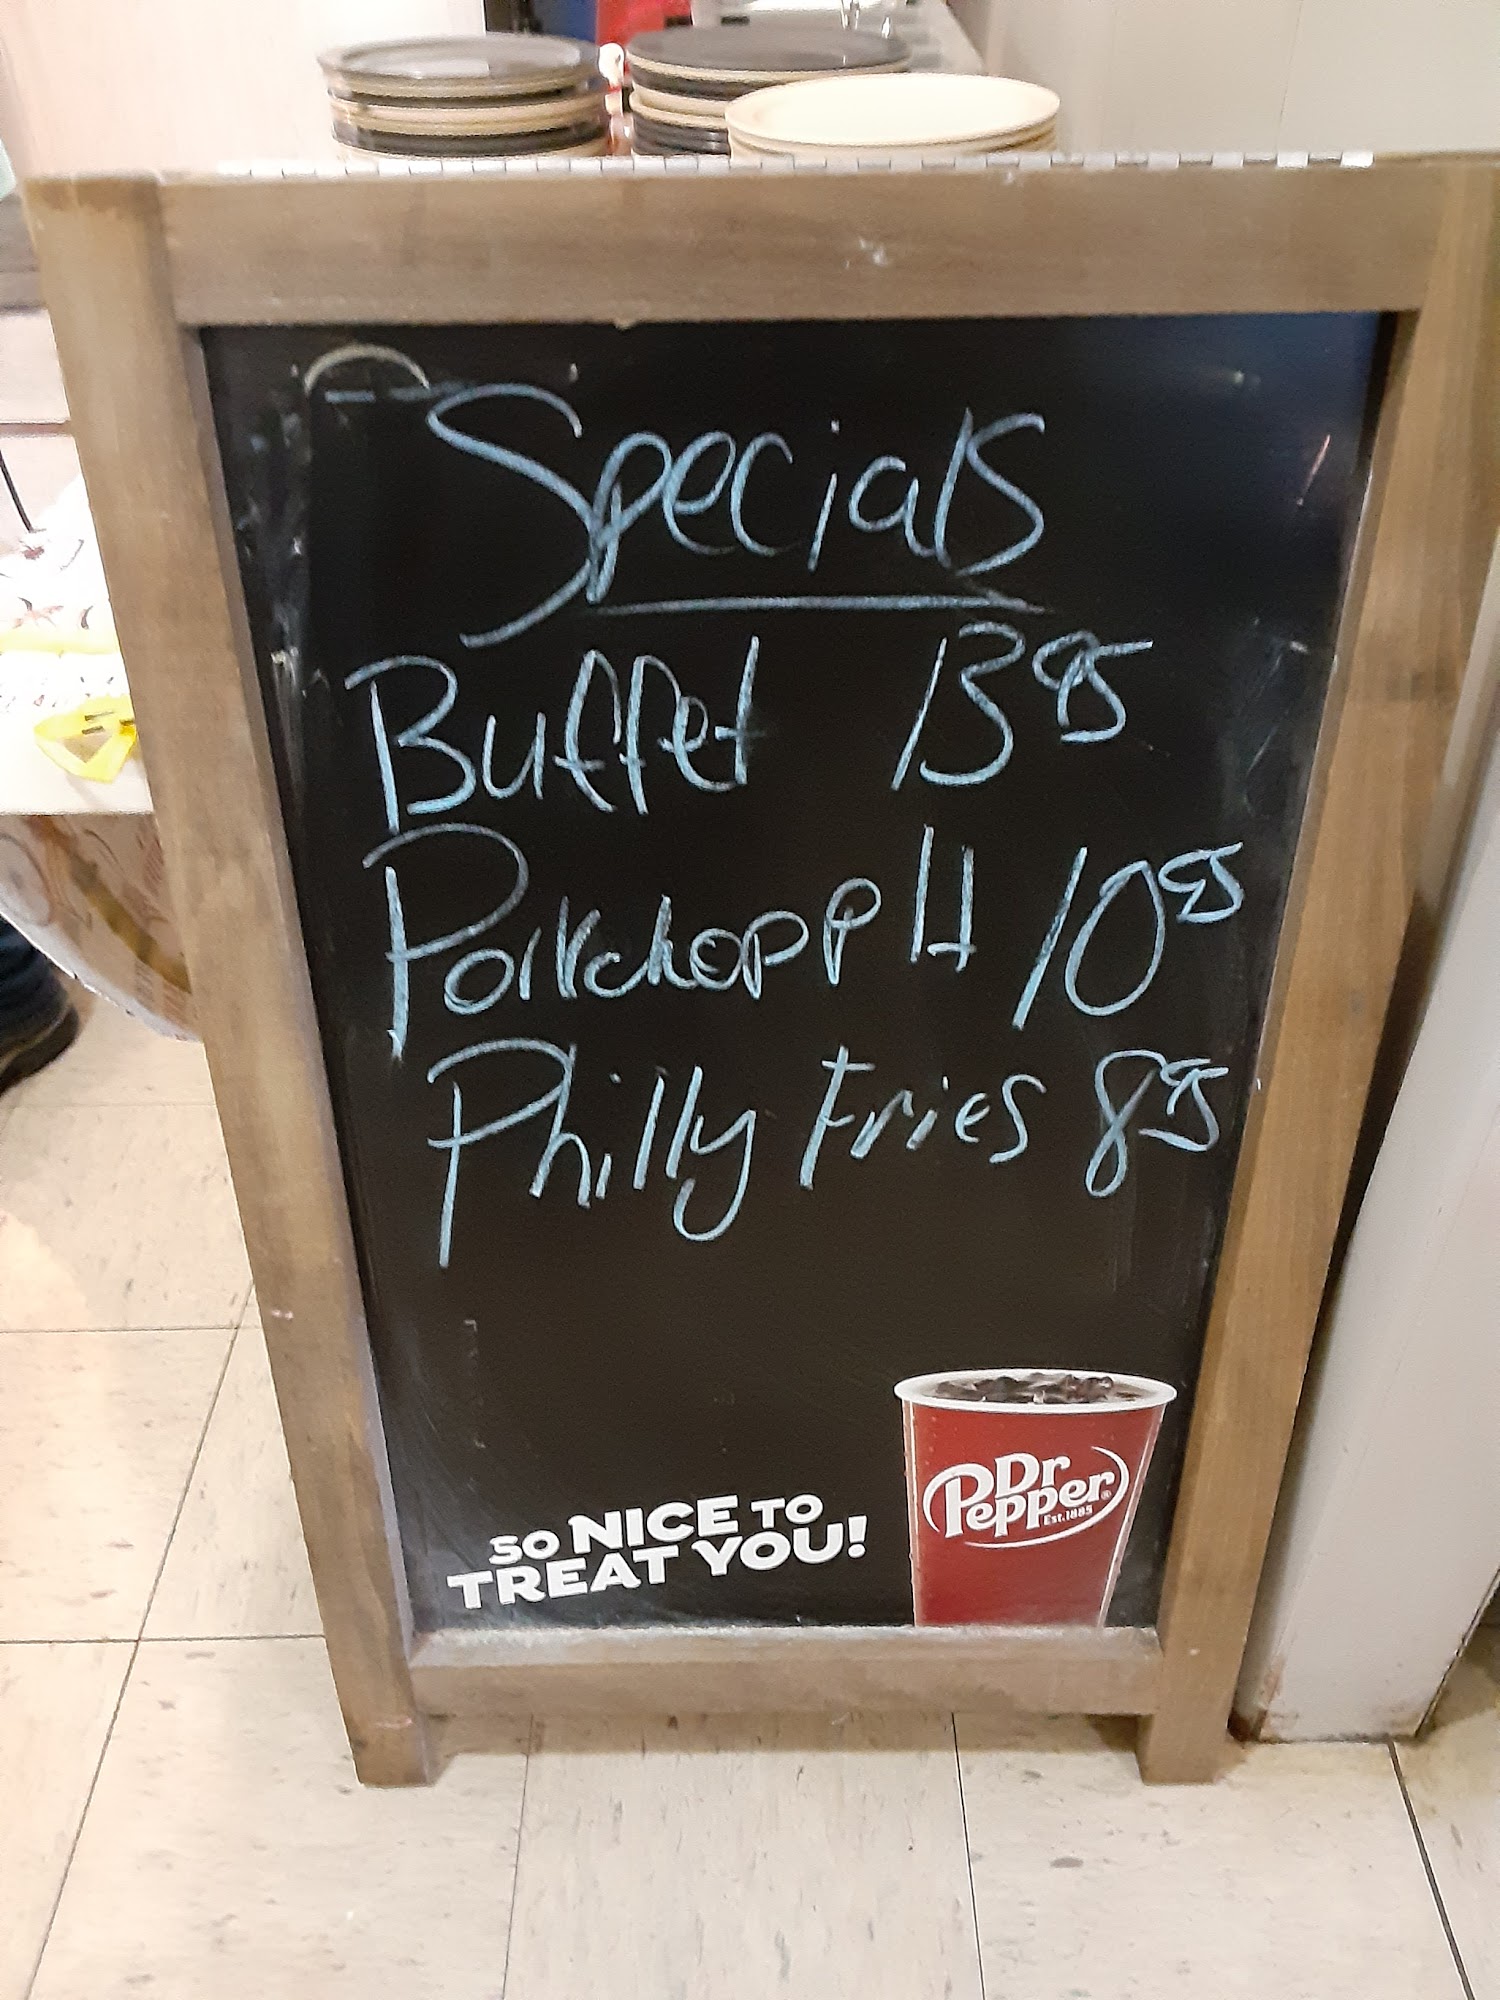 Specials
Buffet 13 95
Porkchop Plt 10 95
Philly Fries 8 95
SO NICE TO
TREAT YOU!
Dr
Pepper
Est. 1885